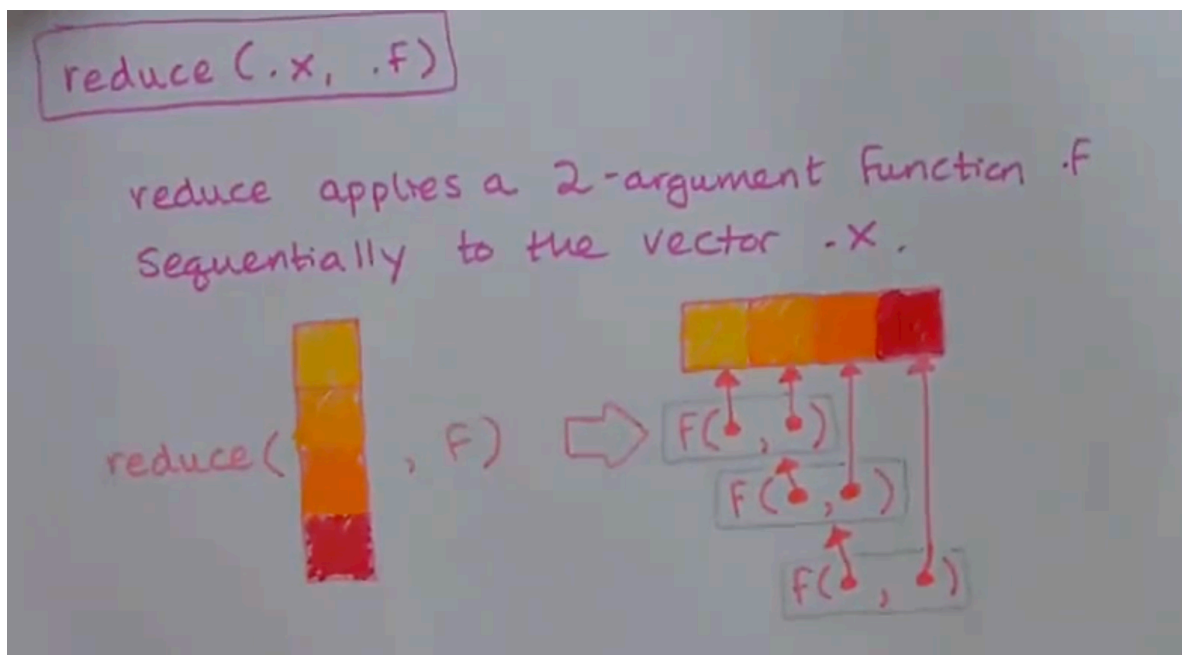 reduce (.x, .f)
reduce applies a 2-argument function .f
sequentially to the vector .x.
reduce( , F)
F( , )
F( , )
f( , )